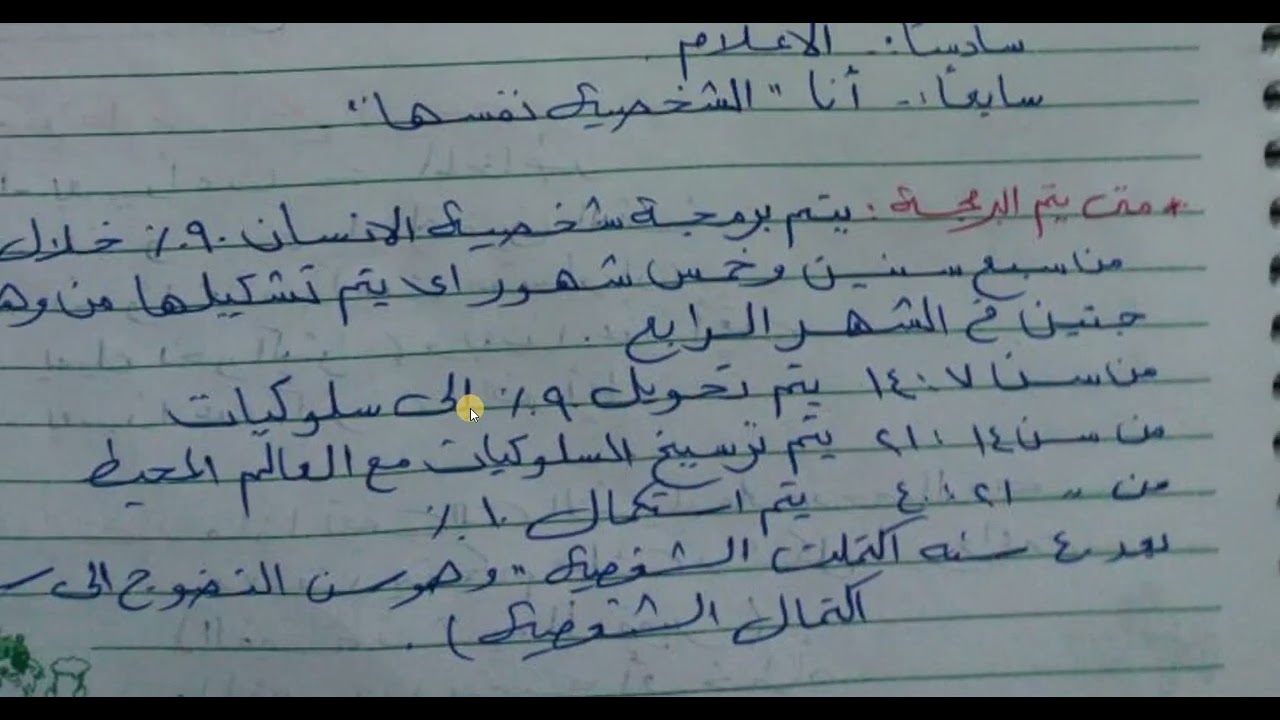 سادساً:. الاعلام
سابعاً:. أنا "الشخصية نفسها"
* متى يتم البرمجة: يتم برمجة شخصية الانسان ٩٠٪ خلال
من سبع سنين وخمس شهور اى يتم تشكيلها من
جنين في الشهر الرابع
من سن ٧ : ١٤ يتم تحويل ٩٠٪ الى سلوكيات
من سن ١٤ : ٢١ يتم ترسيخ السلوكيات مع العالم المحيط
من " ٢١ : ٤٠ يتم استكمال ١٠٪
بعد ٤٠ سنه اكتملت الشخصية " وهو سن النضوج الى
اكتمال الشخصية )